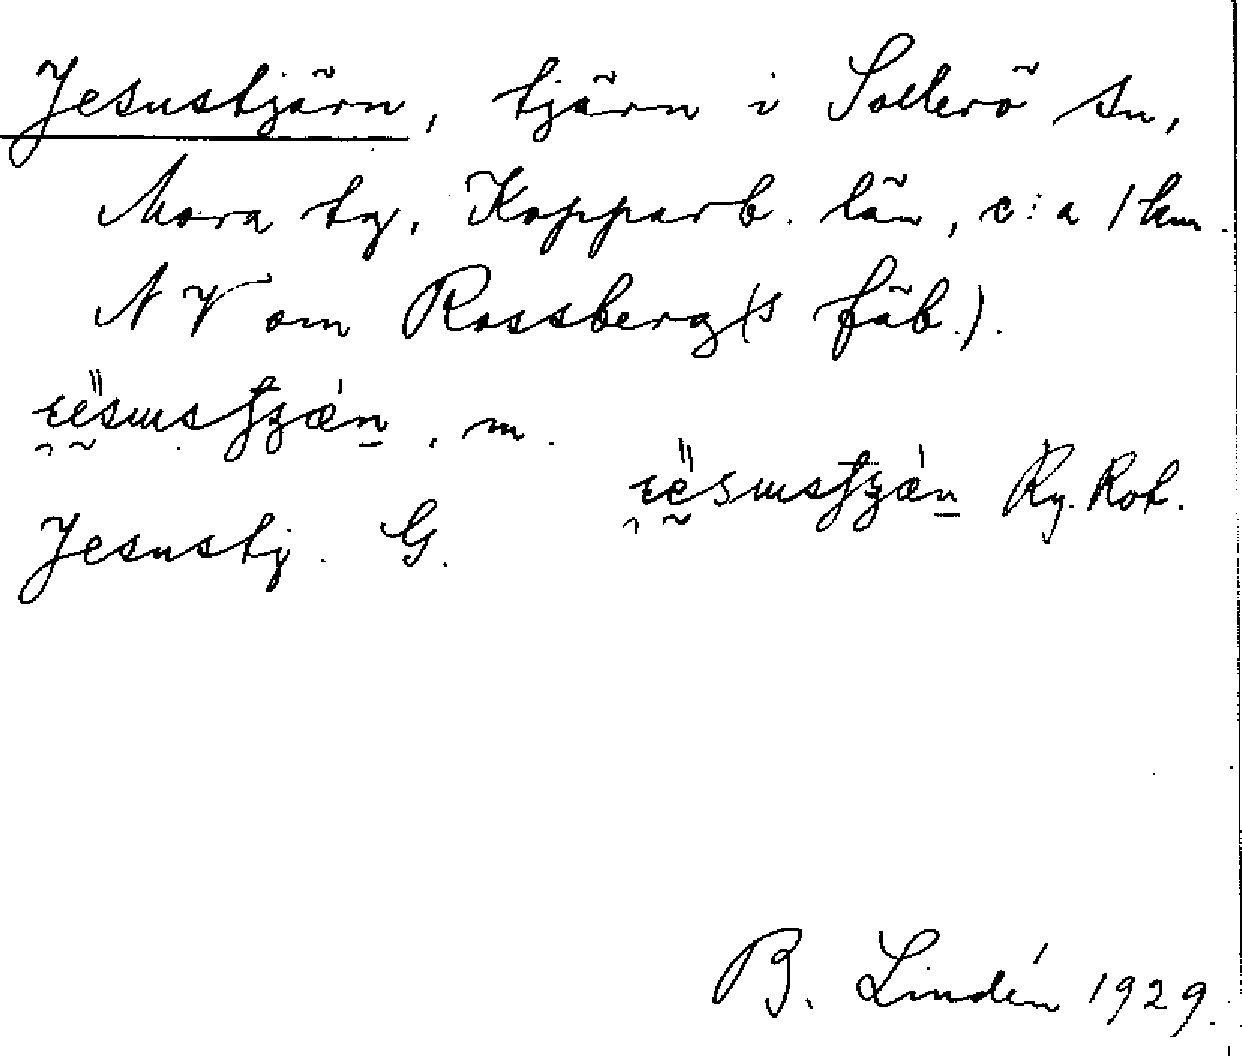 Jesustjärn, tjärn i Sollerö sn,
Mora tg, Kopparb. län, c:a 1 km
NV om Rossberg(s fäb.).
, m.
Ry. Rot.
Jesustj. G.
B. Lindén 1929.